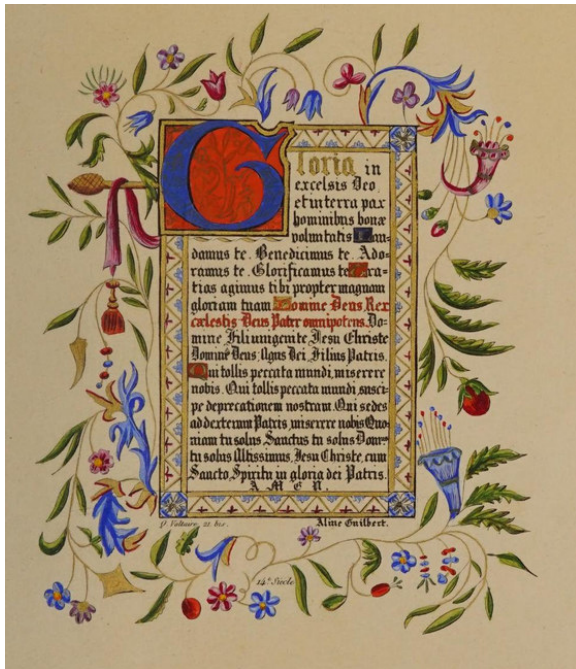 Gloria in
excelsis Deo
et in terra pax
hominibus bonæ
voluntatis Lau-
damus te. Benedicimus te. Ado-
ramus te. Glorificamus te Gra-
tias agimus tibi propter magnam
gloriam tuam Domine Deus Rex
cælestis Deus Pater omnipotens. Do-
mine Fili unigenite Jesu Christe
Domine Deus, Agnus Dei Filius Patris.
Qui tollis peccata mundi, miserere
nobis. Qui tollis peccata mundi, susci
pe deprecationem nostram. Qui sedes
ad dexteram Patris, miserere nobis Quo
niam tu solus Sanctus tu solus Dom
tu solus Altissimus. Jesu Christe, cum
Sancto Spiritu in gloria dei Patris.
AMEN.
Q. Voltaire
Aline Guilbert.
14e Siècle